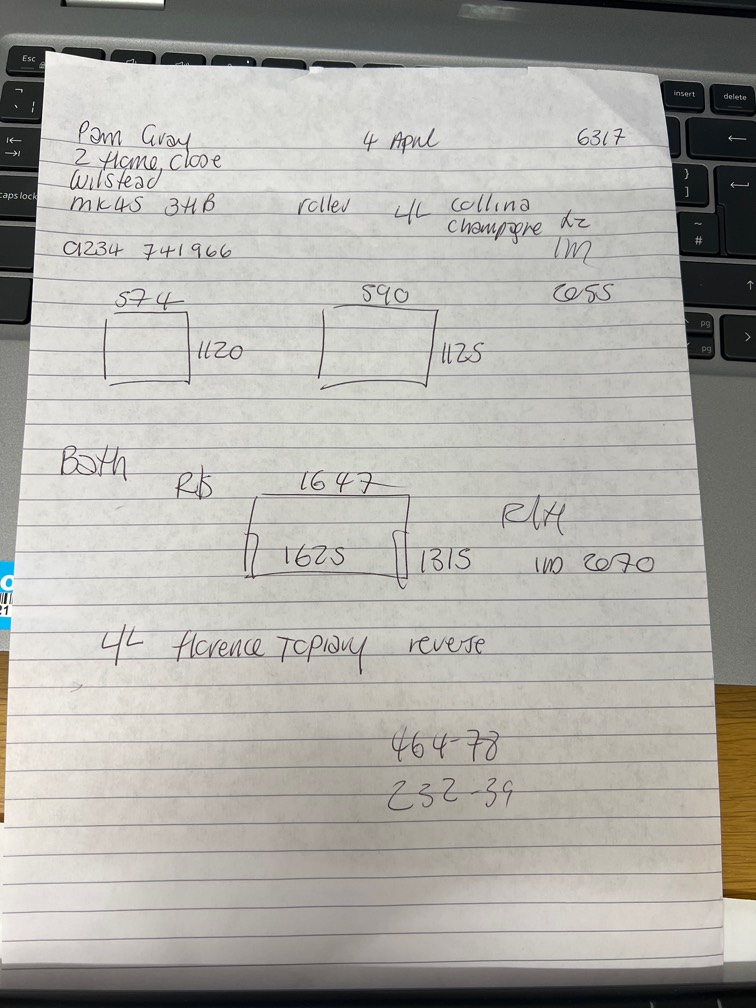 Pam Gray 4 April 6317
2 Home Close
Wilstead
MK45 3HB roller 4/L Collina
Champagne
01234 741966 1m
574 590 @55
1120 1125
Both
R/S 1647 R/H
1625 1315 1m @70
4/L Florence Topiary reverse
464-78
232-39
Esc
insert delete
caps lock
pg
pg